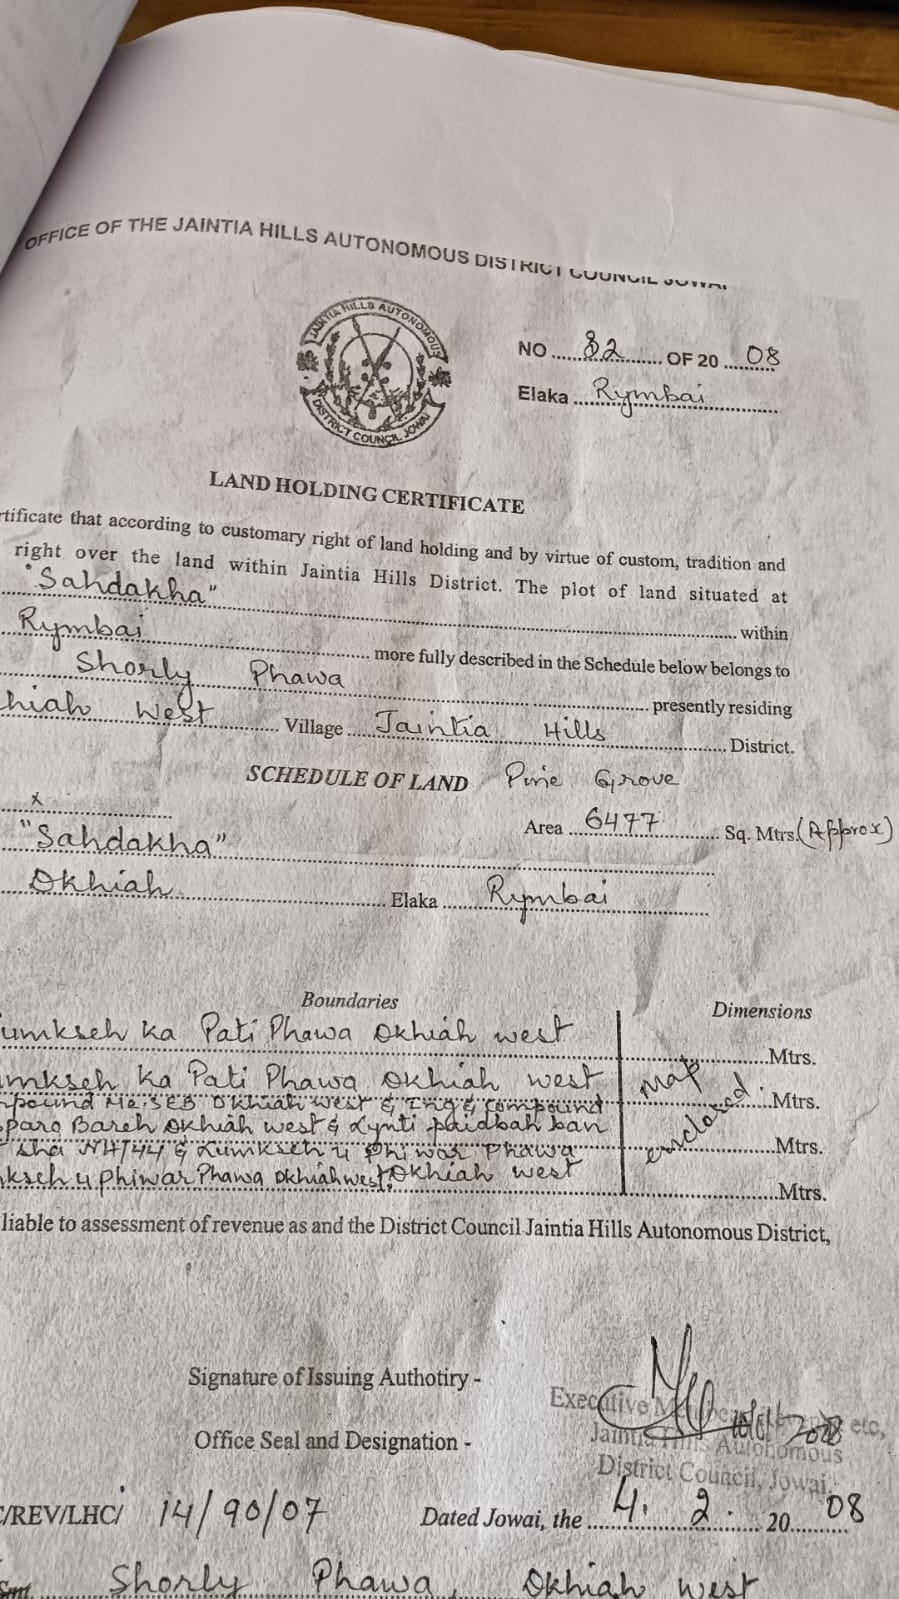 OFFICE OF THE JAINTIA HILLS AUTONOMOUS DISTRICT COUNCIL JOWAI
JAINTIA HILLS AUTONOMOUS
DISTRICT COUNCIL JOWAI
NO 82 OF 20 08
Elaka Rymbai
LAND HOLDING CERTIFICATE
rtificate that according to customary right of land holding and by virtue of custom, tradition and
right over the land within Jaintia Hills District. The plot of land situated at
"Sahdakha" within
Rymbai more fully described in the Schedule below belongs to
Shorly Phawa presently residing
hiah West Village Jaintia Hills District.
SCHEDULE OF LAND Pine Grove
x
Area 6477 Sq. Mtrs. (Approx)
"Sahdakha"
Okhiah Elaka Rymbai
Boundaries Dimensions
umkseh Ka Pati Phawa Okhiah west Mtrs.
mkseh Ka Pati Phawa Okhiah west Map Mtrs.
mpound Me.SEB Okhiah west & Ing & Compound
paro Bareh Okhiah west & Lynti paidbah ban enclosed. Mtrs.
sha NH/44 & Kumkseh u Phiwar Phawa
ksch u Phiwar Phawa Okhiah west, Okhiah west Mtrs.
liable to assessment of revenue as and the District Council Jaintia Hills Autonomous District,
Signature of Issuing Authotiry -
Executive etc,
Office Seal and Designation -
Jaintia Hills Autonomous
District Council, Jowai.
/REV/LHC/ 14/90/07 Dated Jowai, the 4. 2. 20 08
Shorly Phawa, Okhiah west